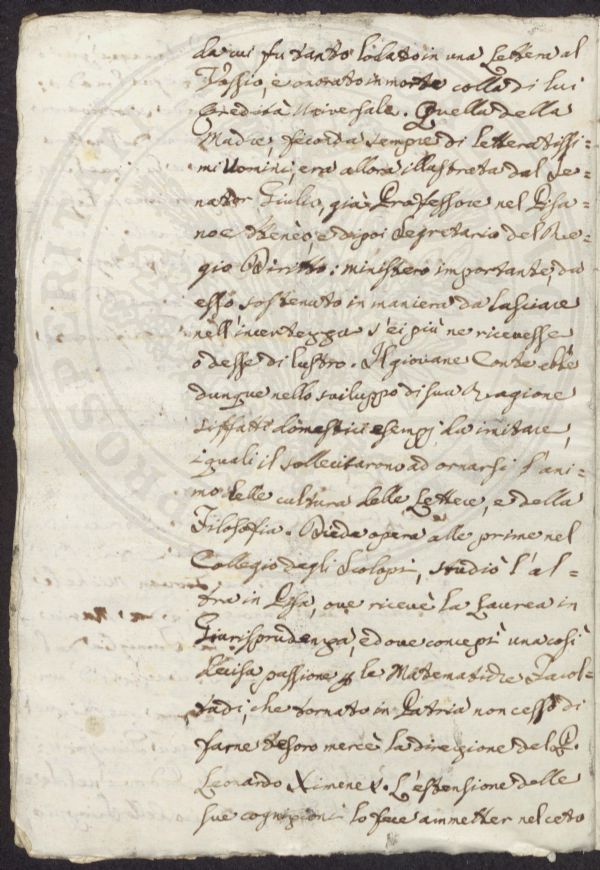 da cui fu tanto lodato in una Lettera al
Tassio, e onorato in morte colla di lui
Eredità Universale. Quella della
Madre, feconda sempre di Letteratissi=
mi Uomini, era allora illustrata dal Se=
nator Giulio, già Professore nel Pisa=
no Ateneo, e dipoi Segretario del Re=
gio Diritto: ministero importante, da
esso sostenuto in maniera da lasciare
nell'incertezza s'ei più ne ricevesse
o desse di lustro. Il giovane Conte ebbe
dunque nello sviluppo di sua Ragione
siffatti domestici esempj da imitare,
i quali il sollecitarono ad ornarsi l'ani=
mo delle cultura delle Lettere, e della
Filosofia. Diede opera alle prime nel
Collegio dagli Scolopi, studiò l'al=
tra in Pisa, ove ricevè la Laurea in
Giurisprudenza, e dove concepì una così
decisa passione p le Matematiche Facol=
tadi, che tornato in Patria non cessò di
farne tesoro mercè la direzione del P.
Leonardo Ximenes. L'estensione delle
sue cognizioni lo fece ammetter nel ceto
PROSPERITAS